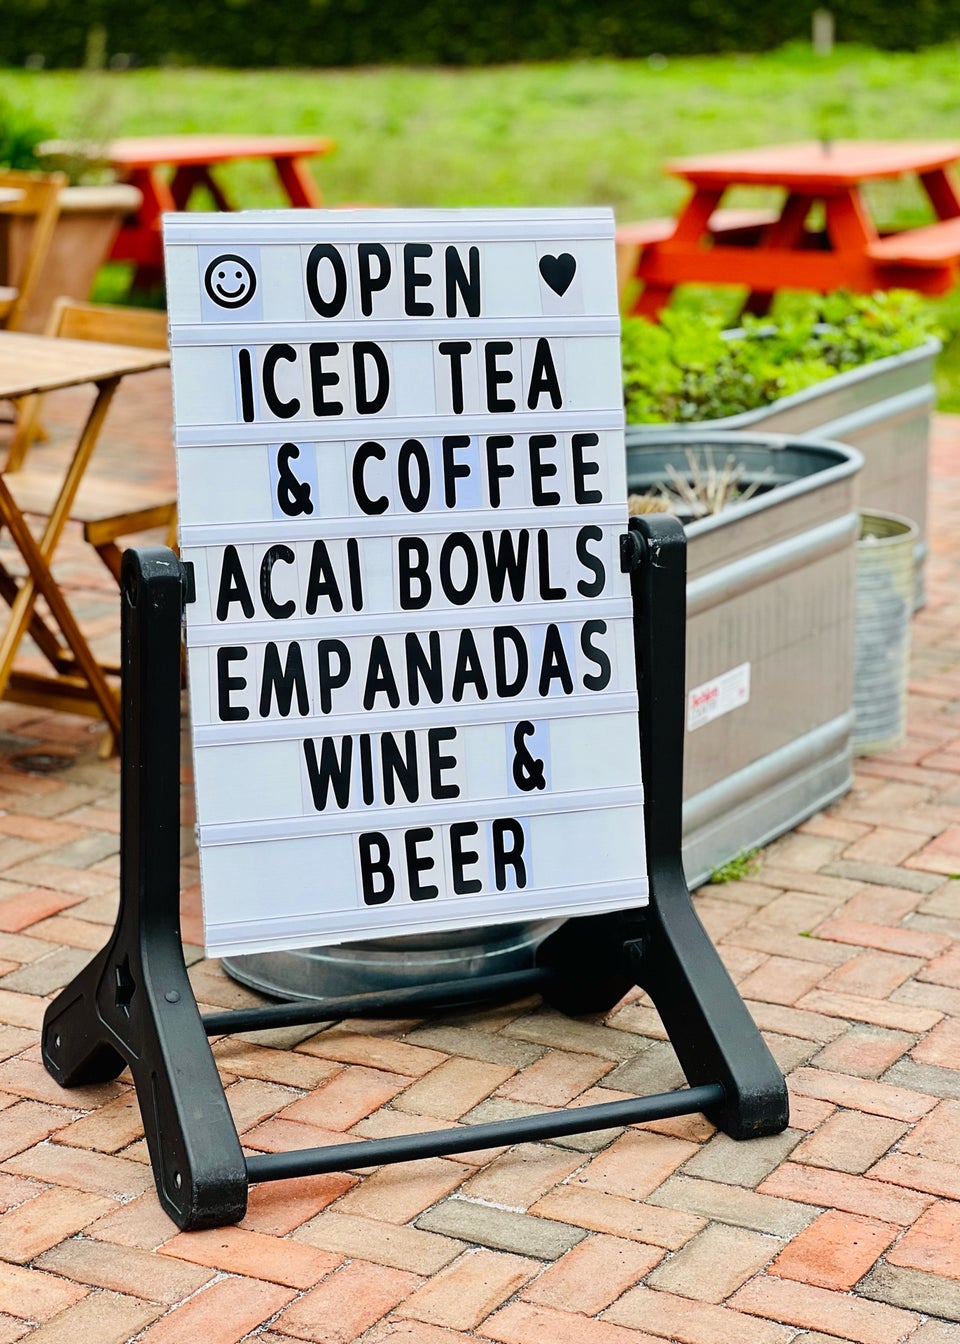 ☺ OPEN ♥
ICED TEA
& COFFEE
ACAI BOWLS
EMPANADAS
WINE &
BEER